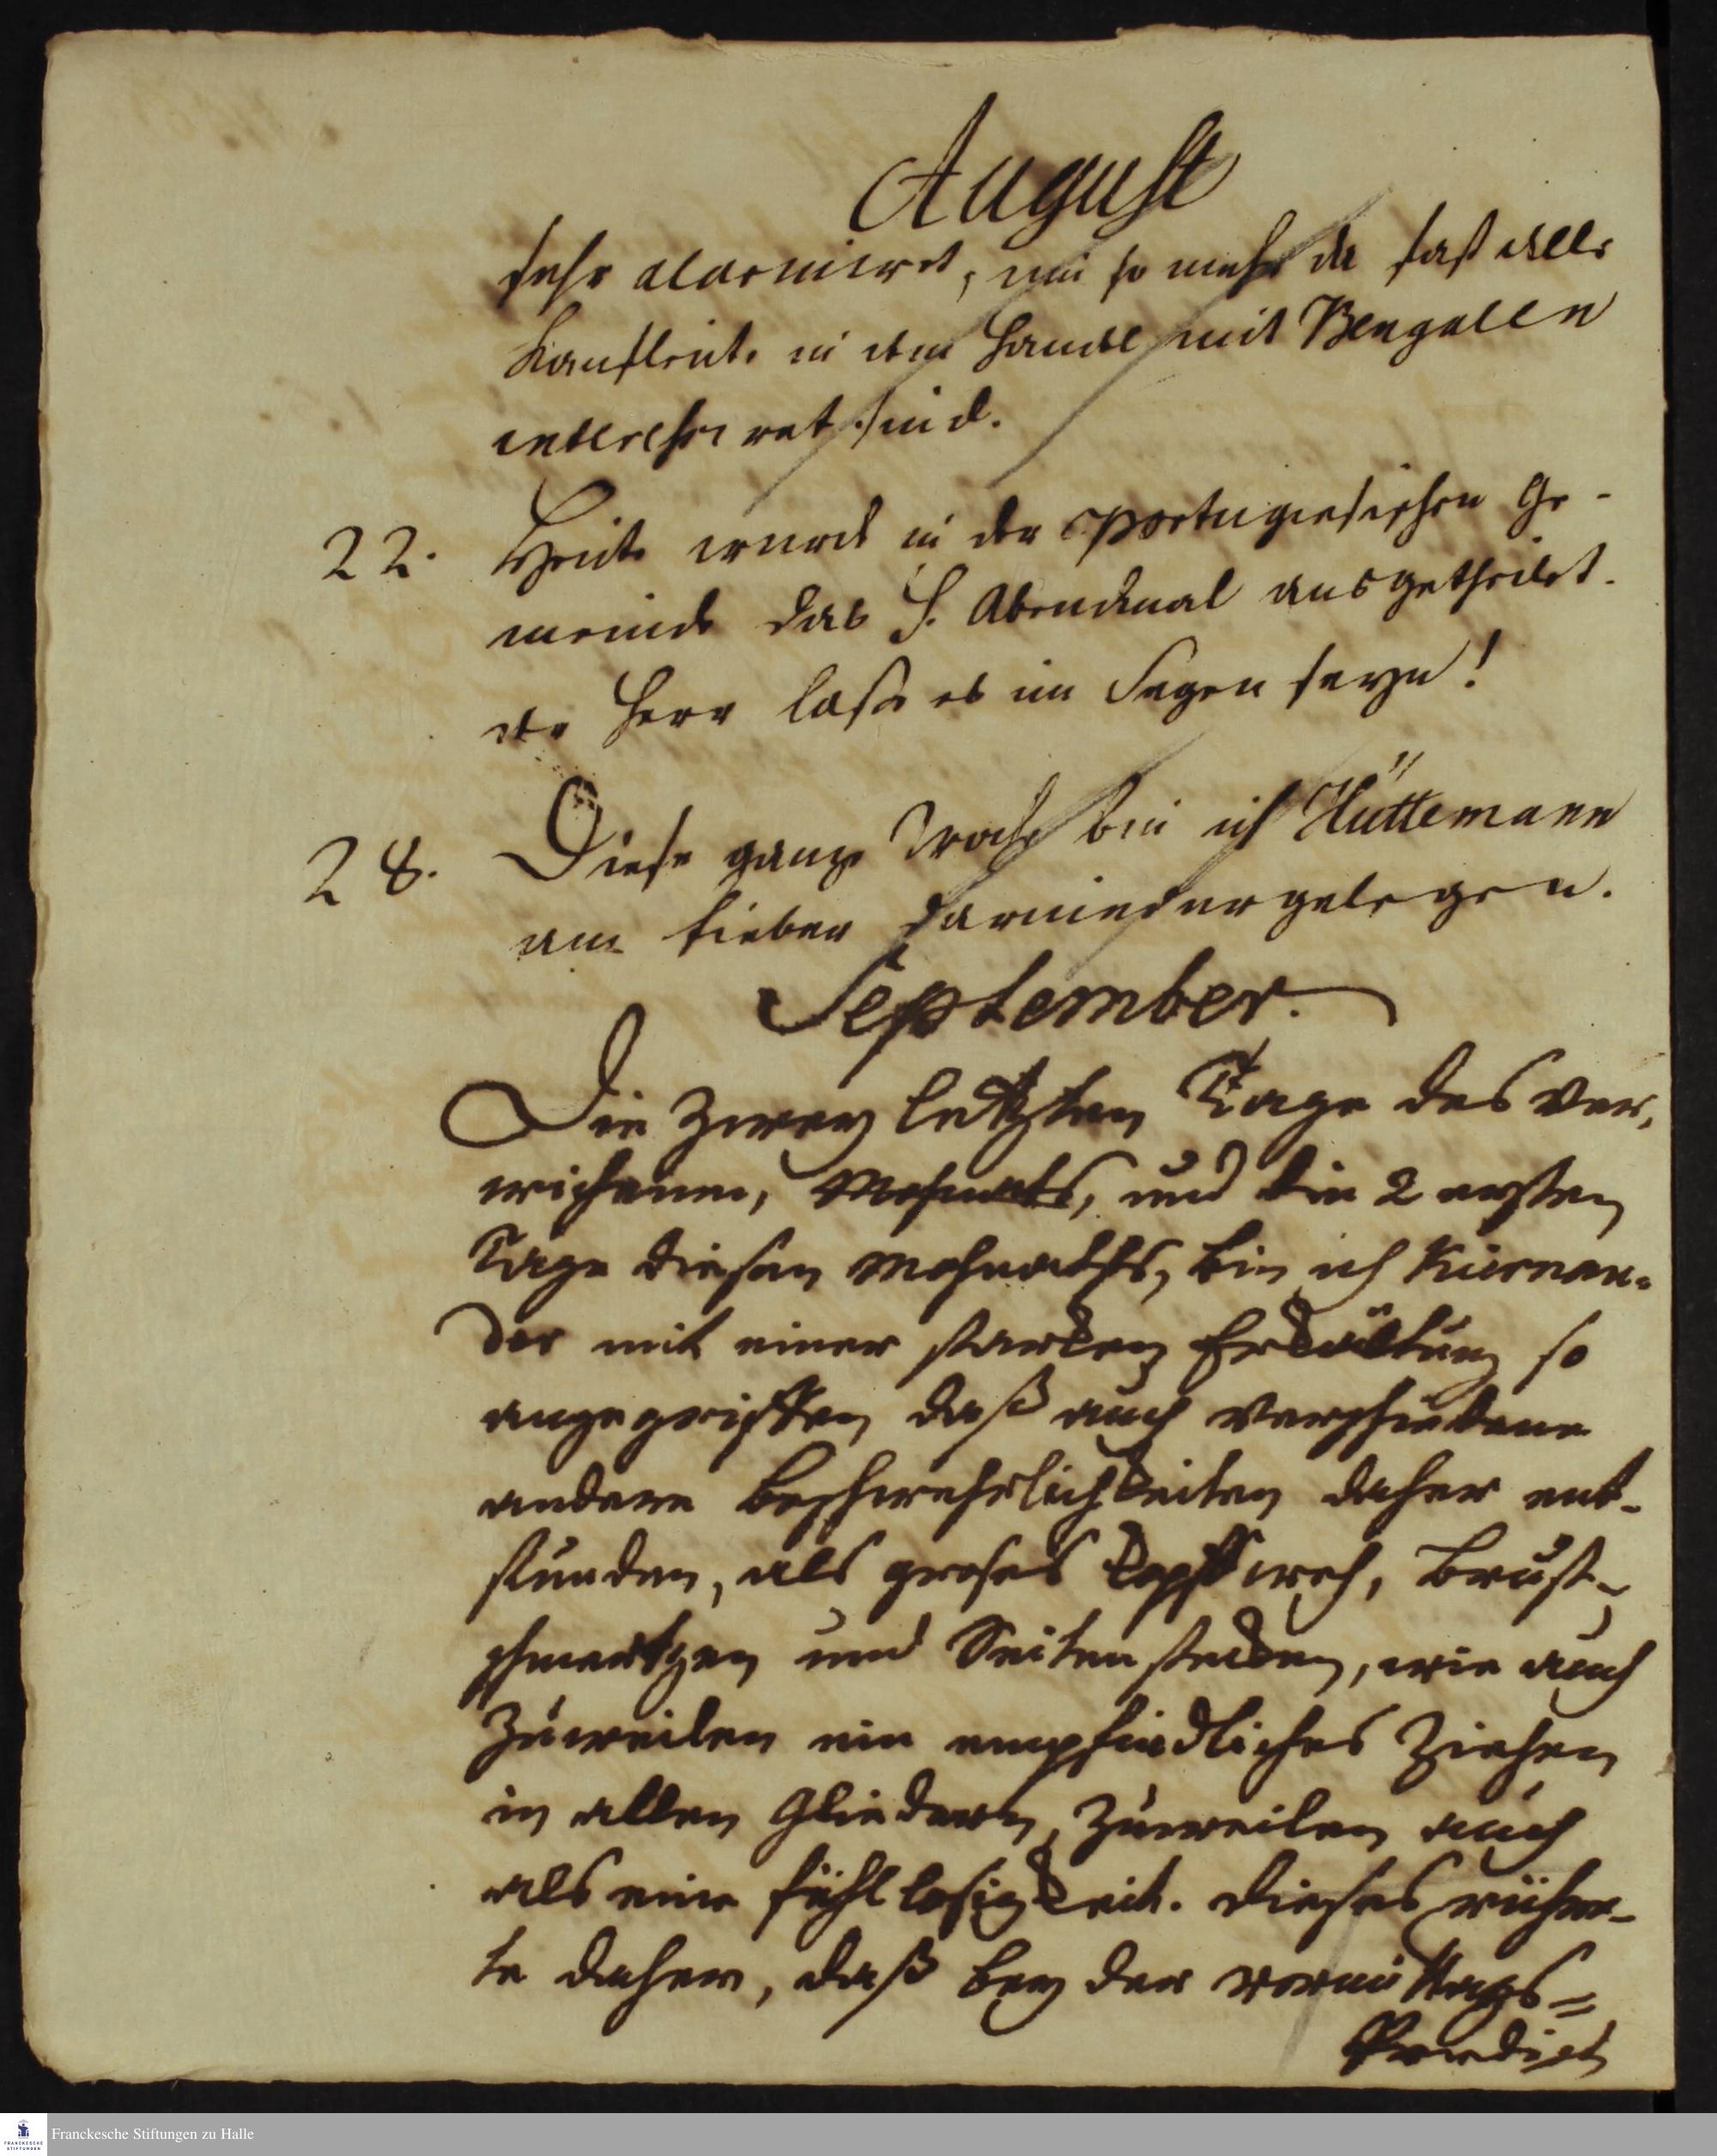 August
sehr alarmiret, um so mehr da fast alle
Kaufleute in dem Handel mit Bengalen
interessiret sind.
22. Heute wurde in der Portugiesischen Ge-
meinde das H. Abendmal ausgetheilet.
der Herr lasse es im Segen seyn!
28. Diese ganze Woche bin ich Hüttemann
am Fieber darniedergelegen.
September.
Die zwey letzten Tage des ver,
wichenen, Mohnats, und die 2 ersten
Tage dieses Mohnaths, bin ich Kiernan-
der mit einer starken Erkältung so
angegriffen, daß auch verschiedene
andere Beschwehrlichkeiten daher ent-
stunden, als großes Kopfweh, Brust-
schmertzen und Seitenstechen, wie auch
Zuweilen ein empfindliches Ziehen
in allen Gliedern, Zuweilen auch
als eine fühllosigkeit. Dieses rühre-
te daher, daß bey der vormittags=
Predigt
Franckesche Stiftungen zu Halle